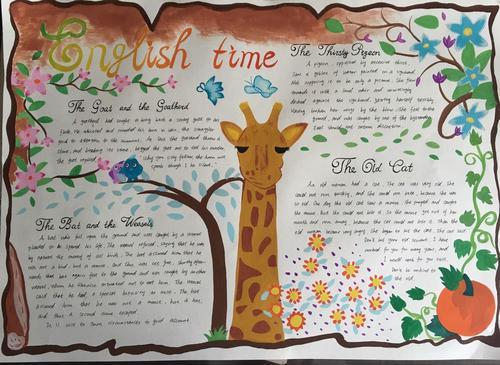 English time
The Thirsty Pigeon
A pigeon, oppressed by excessive thirst,
saw a goblet of water painted on a signboard.
Not supposing it to be only a picture, she flew
towards it with a loud whir and unwittingly
dashed against the signboard, jarring herself terribly.
Having broken her wings by the blow, she fell to the
ground, and was caught by one of the bystanders.
Zeal should not outrun discretion.
The Goat and the Goatherd
A goatherd had sought to bring back a stray goat to his
flock. He whistled and sounded his horn in vain; the straggler
paid no attention to the summons. At last the goatherd threw a
stone, and breaking its horn, begged the goat not to tell his master.
the goat replied, "Why, you silly fellow, the horn will
speak though I be silent."
The Old Cat
An old woman had a cat. The cat was very old. She
could not run quickly, and she could not bite, because she was
so old. One day the old cat saw a mouse. She jumped and caught
the mouse. But she could not bite it. So the mouse got out of her
mouth and ran away, because the cat could not bite it. Then the
old woman became very angry. She began to hit the cat. She cat said:
Don't hit your old servant. I have
worked for you for many years, and
I would work for you still.
Don't be unkind to
the old.
The Bat and the Weasels
A bat who fell upon the ground and was caught by a weasel
pleaded to be spared his life. The weasel refused, saying that he was
by nature the enemy of all birds. The bat assured him that he
was not a bird, but a mouse, and thus was set free. Shortly after-
wards the bat again fell to the ground and was caught by another
weasel, whom he likewise entreated not to eat him. The weasel
said that he had a special hostility to mice. The bat
assured him that he was not a mouse, but a bat,
and thus a second time escaped.
It is wise to turn circumstances to good account.